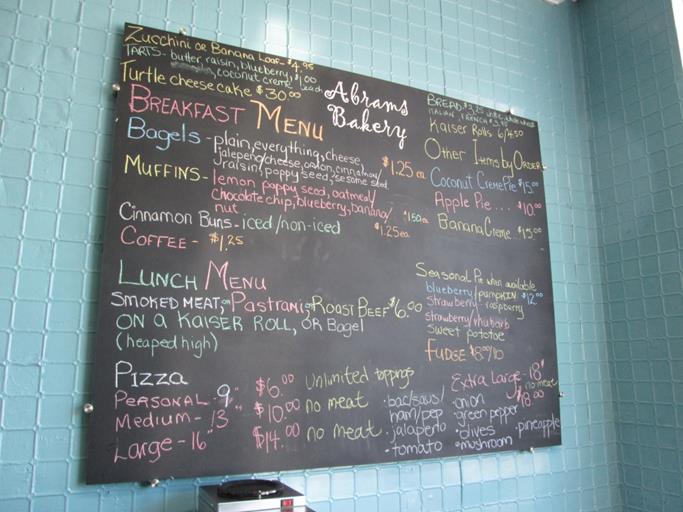 Zucchini or Banana Loaf - $4.95
TARTS - butter raisin, blueberry, $1.00
coconut creme each
Turtle cheese cake $30.00
Abrams
Bakery
BREAKFAST MENU
Bagels - plain, everything, cheese,
jalepeno/cheese, onion, cinnamon/
raisin, poppy seed, sesame seed
$1.25 ea
MUFFINS - lemon poppy seed, oatmeal/
chocolate chip, blueberry, banana/
nut
Cinnamon Buns - iced/non-iced
$1.50 ea
$1.25 ea
COFFEE - $1.25
LUNCH MENU
SMOKED MEAT, or Pastrami or ROAST BEEF $6.00
ON A KAISER ROLL, OR Bagel
(heaped high)
PIZZA
PERSONAL - 9" $6.00 Unlimited toppings
Medium - 13" $10.00 no meat
Large - 16" $14.00 no meat
• bac/saus/
ham/pep
• jalapeno
• tomato
Extra Large - 18"
no meat
$18.00
• onion
• green pepper
• olives
• mushroom
• pineapple
BREAD $3.25 white, whole wheat
ITALIAN, FRENCH
Kaiser Rolls 6/4.50
Other Items by ORDER
Coconut Creme Pie $15.00
Apple Pie.... $10.00
Banana Creme.. $15.00
Seasonal Pie when available
blueberry/pumpkin $12.00
strawberry-raspberry
strawberry/rhubarb
sweet pototoe
FUDGE $8.00/lb